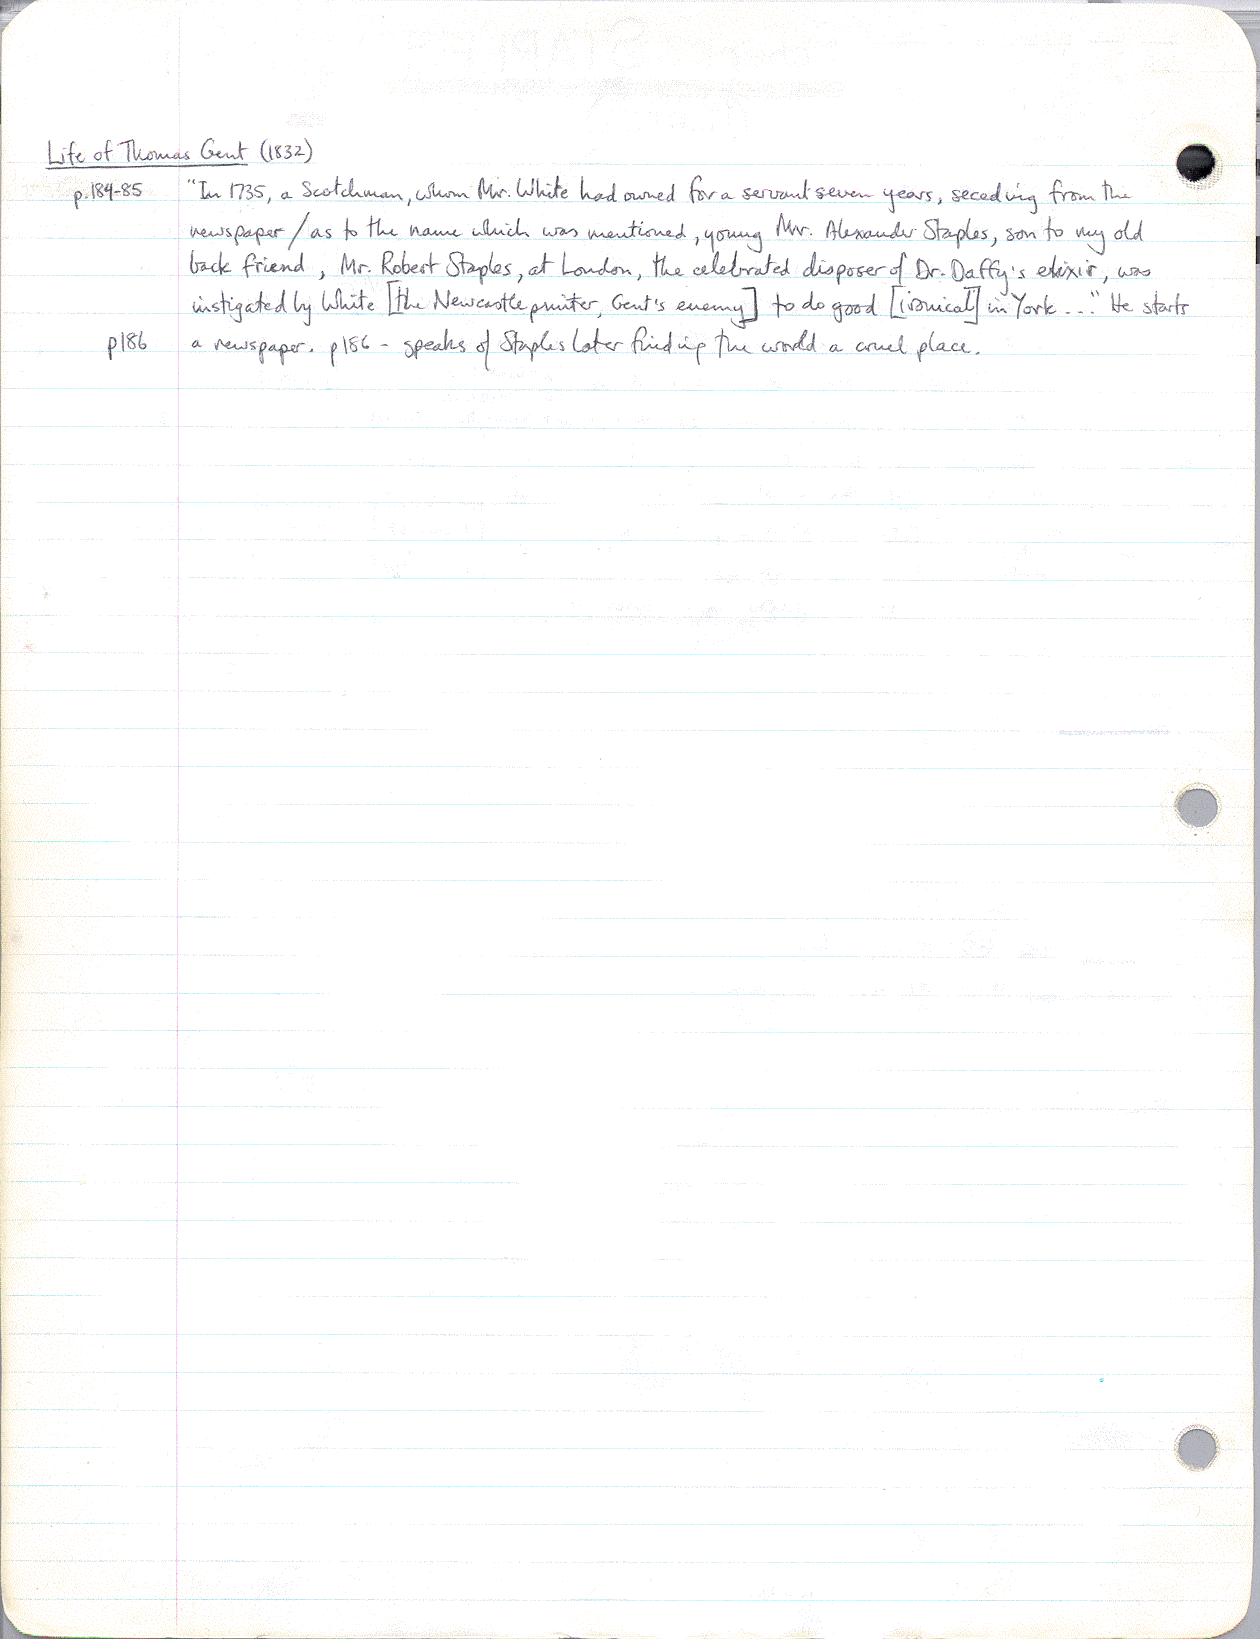 Life of Thomas Gent (1832)
p.184-85 "In 1735, a Scotchman, whom Mr. White had owned for a servant seven years, seceding from the
newspaper / as to the name which was mentioned, young Mr. Alexander Staples, son to my old
back friend, Mr. Robert Staples, at London, the celebrated disposer of Dr. Daffy's elixir, was
instigated by White [the Newcastle printer, Gent's enemy] to do good [ironical] in York ..." He starts
p186 a newspaper. p186 - speaks of Staples later finding the world a cruel place.